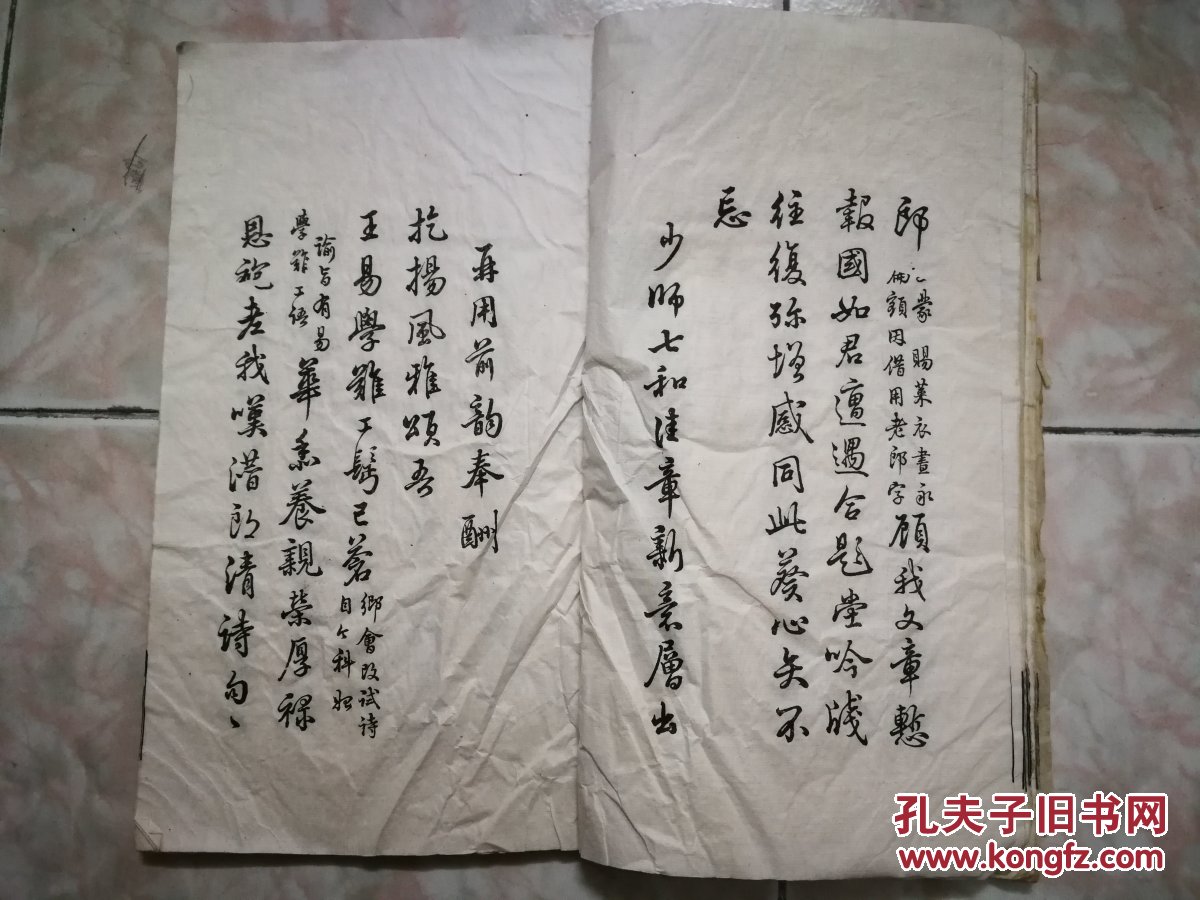 郎
蒙賜萊衣晝永
額因借用老郎字
顧我文章慙
報國如君遭遇合題堂吟牋
往復弥增感同此葵心矢不
忘
少師七和佳章新意層出
再用前韵奉酬
扢揚風雅頌吾
王易學難工鬂已蒼
鄉會改試詩
自今科始
諭旨有易
學難工語
華黍養親榮厚祿
恩袍老我嘆潛郎清詩句
孔夫子旧书网
www.kongfz.com